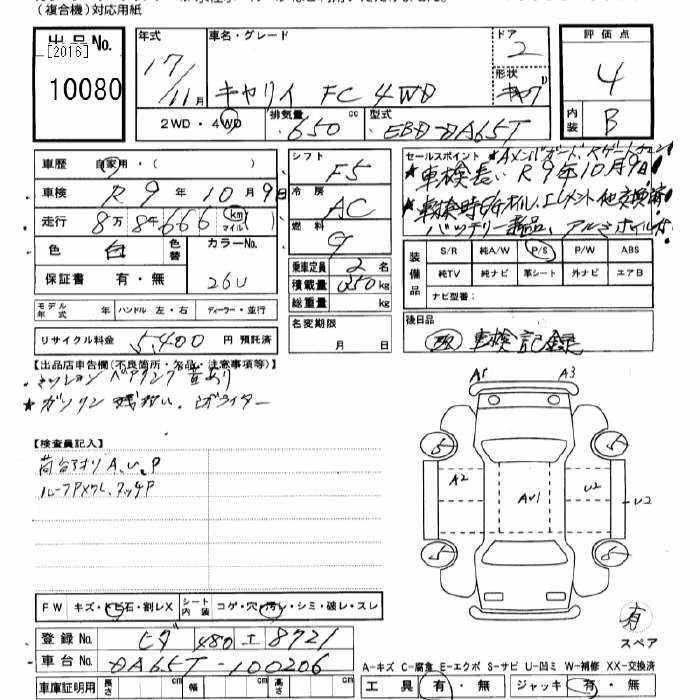 (複合機)対応用紙
出品No.
[2016]
10080
年式
17/11月
車名・グレード
キャリイ FC 4WD
ドア
2
形状
評価点
4
内装
B
2WD・4WD
排気量
650
cc
型式
EBD-DA65T
車歴
自家用・(
)
車検
R9年10月9日
走行
8万8千666
km
マイル
色
白
色替
カラーNo.
26U
保証書
有・無
シフト
F5
冷房
AC
燃料
乗車定員
2名
積載量
350kg
総重量
kg
セールスポイント
★車検長い R9年10月9日!
バッテリー新品、アルミホイール
装備品
S/R
純A/W
P/S
P/W
ABS
純TV
純ナビ
革シート
外ナビ
エアB
ナビ型番:
モデル年式
年
ハンドル
左・右
ディーラー・並行
リサイクル料金
5,400
円
預託済
名変期限
月
日
後日品
車検 記録
【出品店申告欄(不良箇所・欠品・注意事項等)】
・ミッションベアリング音あり
【検査員記入】
荷台アオリA、U、P
A1
A3
5
5
A2
AU1
U2
U2
5
5
有
スペア
FW
キズ・トビ石・割レX
シート内装
コゲ・穴・汚レ・シミ・破レ・スレ
登録No.
480
8721
車台No.
DA65T-100206
車庫証明用
長さ
cm
幅
cm
高さ
cm
A-キズ C-腐食 E-エクボ S-サビ U-凹ミ W-補修 XX-交換済
工具
有・無
ジャッキ
有・無